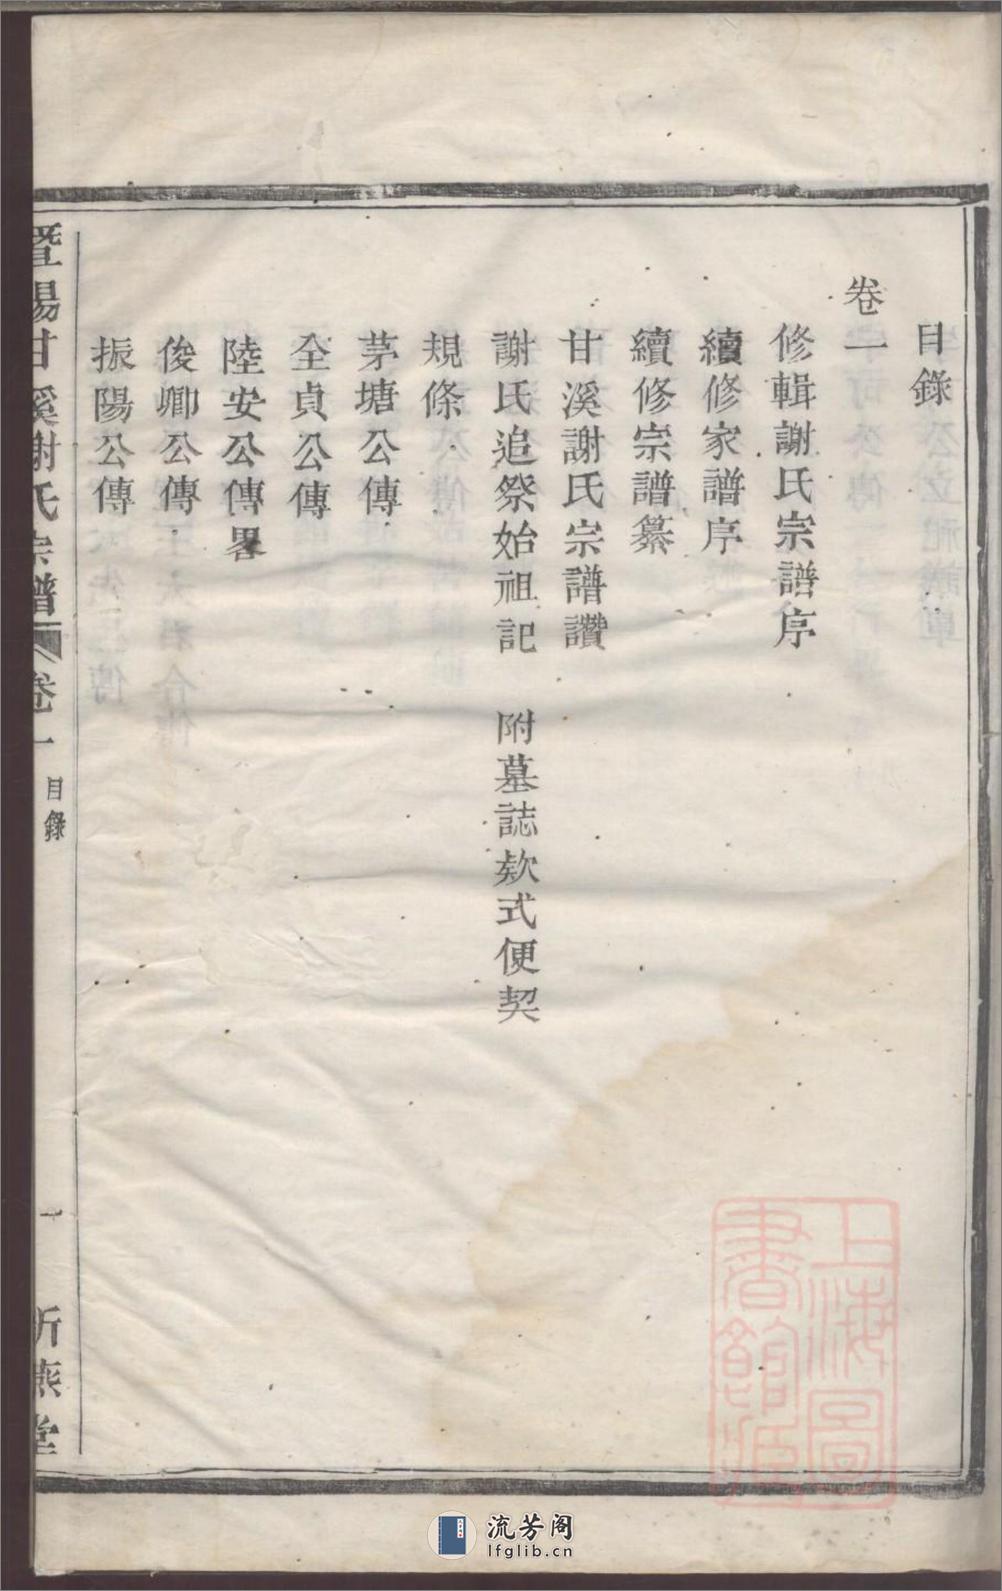 目錄
卷一
修輯謝氏宗譜序
續修家譜序
續修宗譜纂
甘溪謝氏宗譜讚
謝氏追祭始祖記 附墓誌欵式便契
規條
茅塘公傳
全貞公傳
陸安公傳畧
俊卿公傳
振陽公傳
暨陽甘溪謝氏宗譜 卷一 目錄 一
燕堂
上海圖書館藏
流芳阁
lfglib.cn